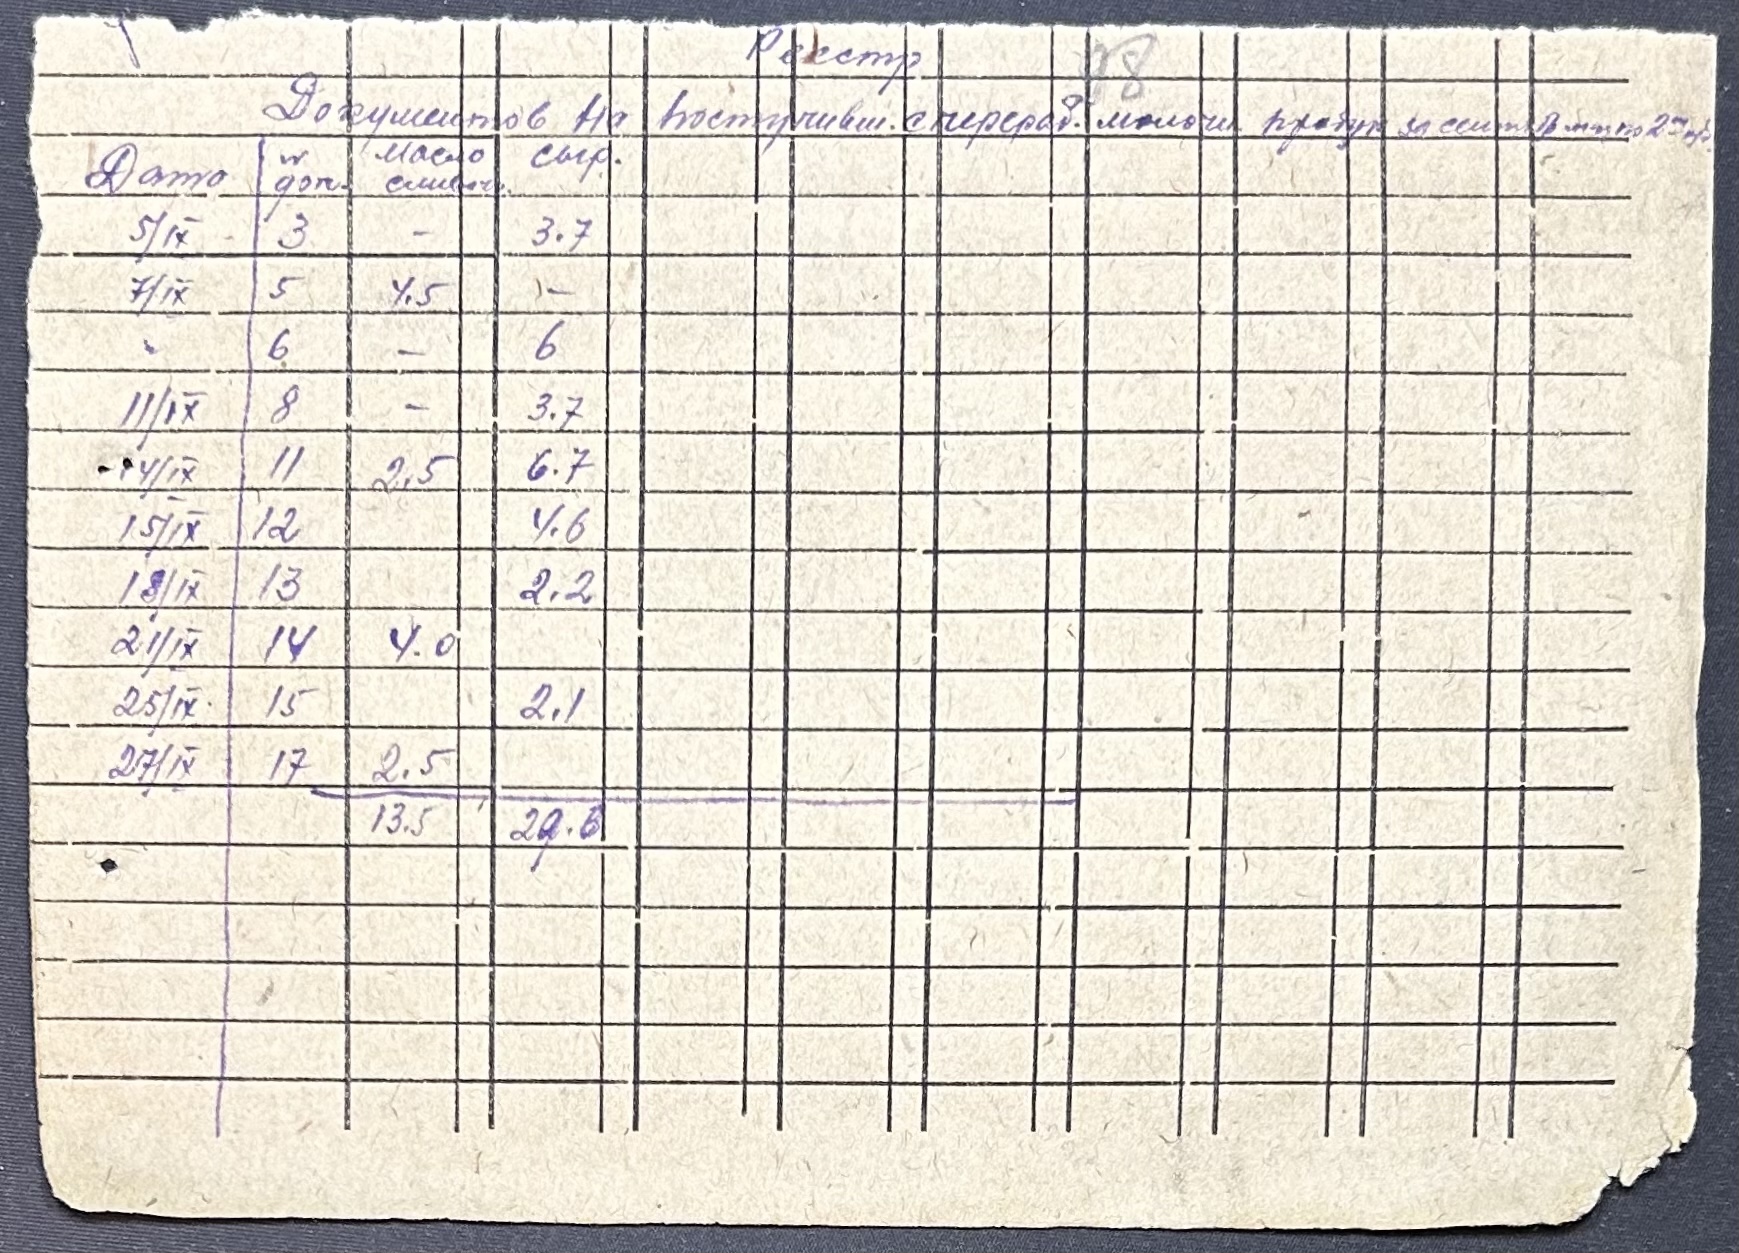 Реестр
98
Документов на поступивш. с перераб. молочн. продук за сентябрь
Дата № док. масло сливоч. сыр.
5/IX 3 - 3.7
7/IX 5 4.5 -
" 6 - 6
11/IX 8 - 3.7
14/IX 11 2,5 6.7
15/IX 12 4.6
18/IX 13 2.2
21/IX 14 4.0
25/IX 15 2.1
27/IX 17 2.5
13.5 29.6